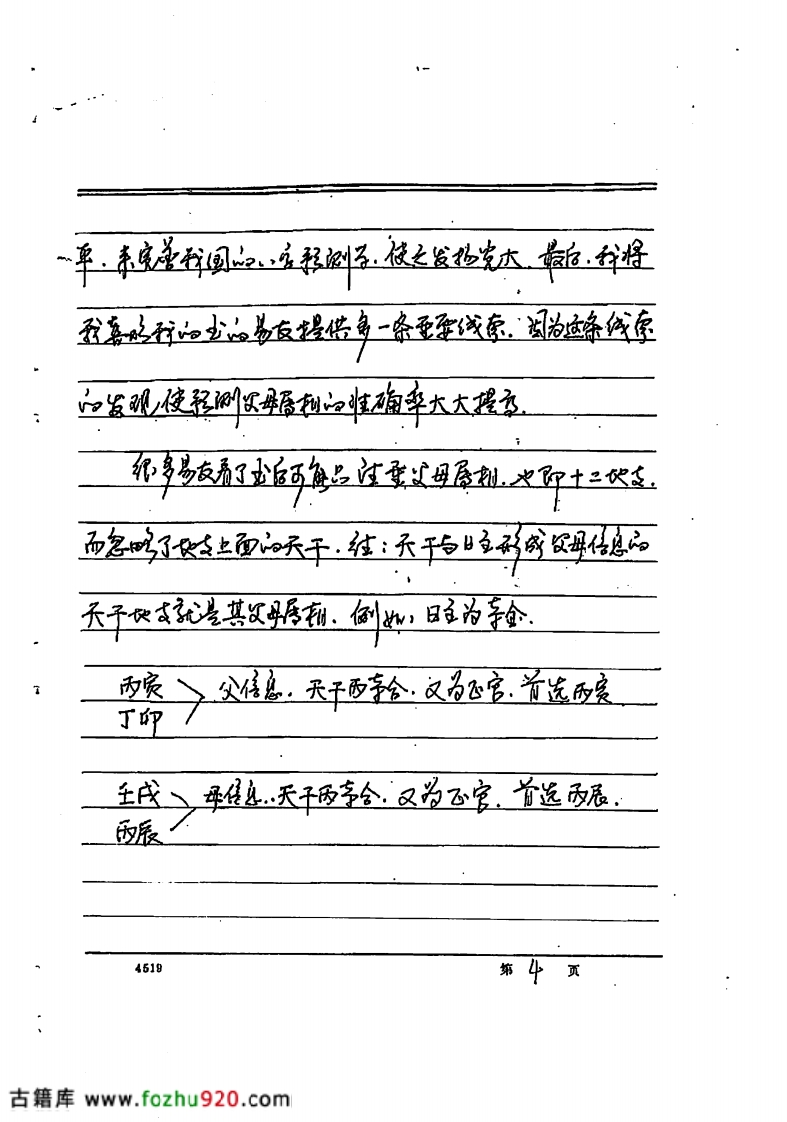 平.来完善我国的八字预测学,使之发扬光大.最后,我将
我喜欢我的书的易友提供多一条重要线索.因为这条线索
的发现,使预测父母属相的准确率大大提高.
很多易友看了书后可能只注重父母属相.也即十二地支.
而忽略了地支上面的天干.注:天干与日主形成父母信息的
天干地支就是其父母属相.例如:日主为辛金.
丙寅 > 父信息.天干丙辛合.又为正官.首选丙寅
丁卯
壬戌 > 母信息..天干丙辛合.又为正官.首选丙辰.
丙辰
4519 第4页
古籍库 www.fozhu920.com